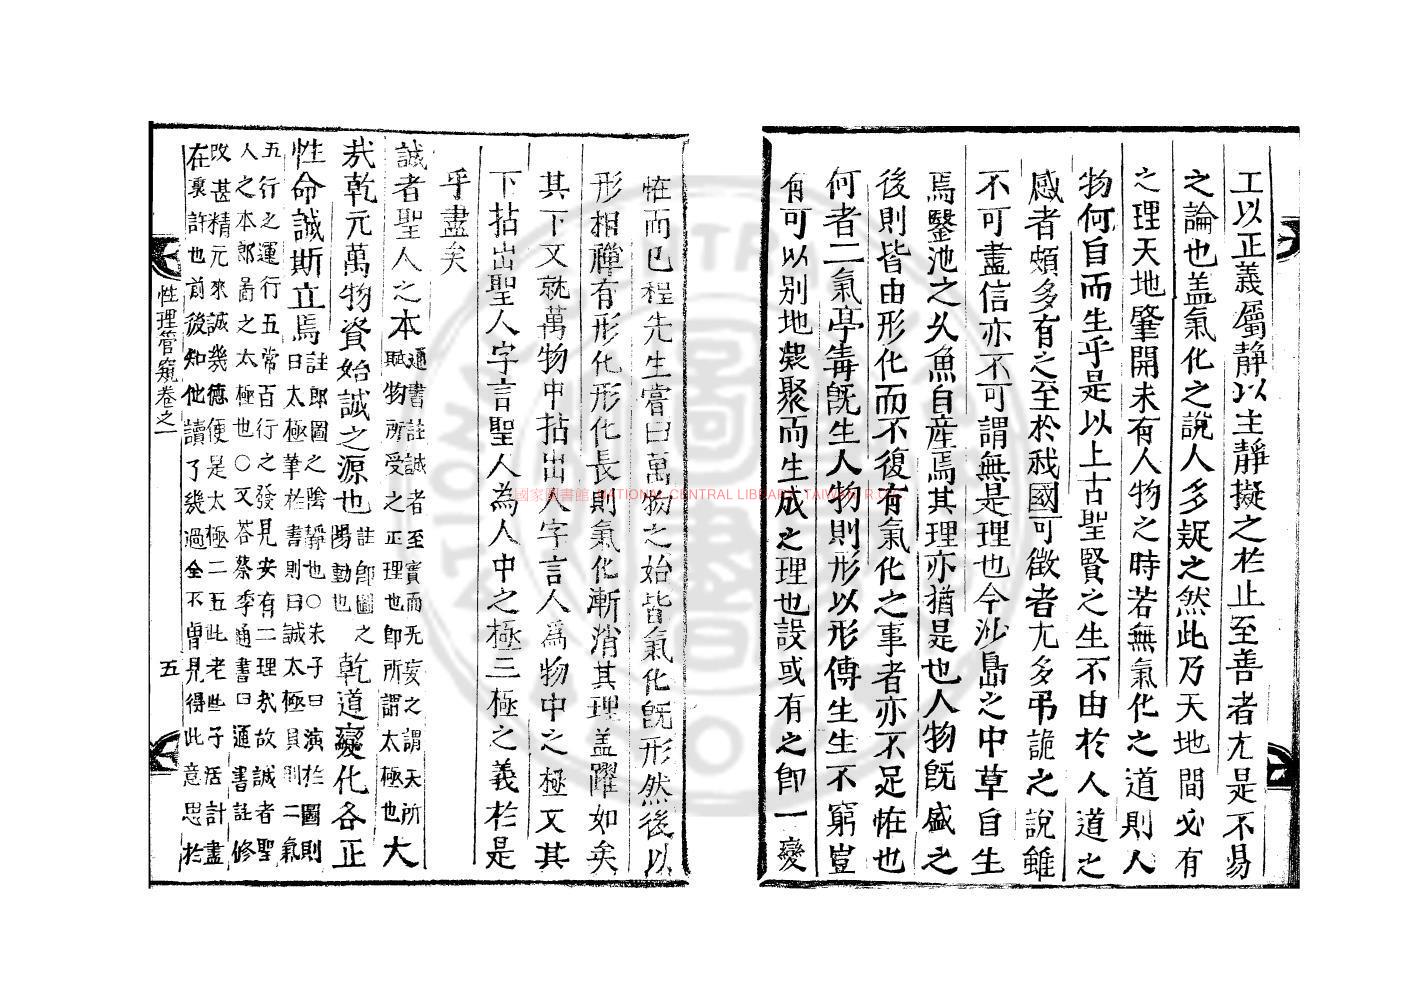 工以正義屬靜以主靜擬之於止至善者尢是不易
之論也盖氣化之說人多疑之然此乃天地間必有
之理天地肇開未有人物之時若無氣化之道則人
物何自而生乎是以上古聖賢之生不由於人道之
感者頗多有之至於我國可徵者尢多弔詭之說雖
不可盡信亦不可謂無是理也今沙島之中草自生
焉鑿池之久魚自産焉其理亦猶是也人物旣盛之
後則皆由形化而不復有氣化之事者亦不足恠也
何者二氣亭毒旣生人物則形以形傳生生不窮豈
有可以别地㪚聚而生成之理也設或有之卽一變
恠而已程先生嘗曰萬物之始皆氣化旣形然後以
形相禪有形化形化長則氣化漸消其理盖躍如矣
其下文就萬物中拈出人字言人爲物中之極文其
下拈出聖人字言聖人為人中之極三極之義於是
乎盡矣
誠者聖人之本通書註誠者至實而无妄之謂天所
賦物所受之正理也卽所謂太極也大
哉乾元萬物資始誠之源也註卽圖之
陽動也乾道變化各正
性命誠斯立焉註卽圖之陰靜也○朱子曰演於圖則
曰太極筆於書則曰誠太極員則二氣
五行之運行五常百行之發見安有二理哉故誠者聖
人之本卽啚之太極也○又荅蔡季通書曰通書註修
改甚精元來誠幾德便是太極二五此老些子活計盡
在裏許也前後知他讀了幾過全不曾見得此意思於
性理管窺卷之一
五
國家圖書館 NATIONAL CENTRAL LIBRARY, TAIWAN, R.O.C